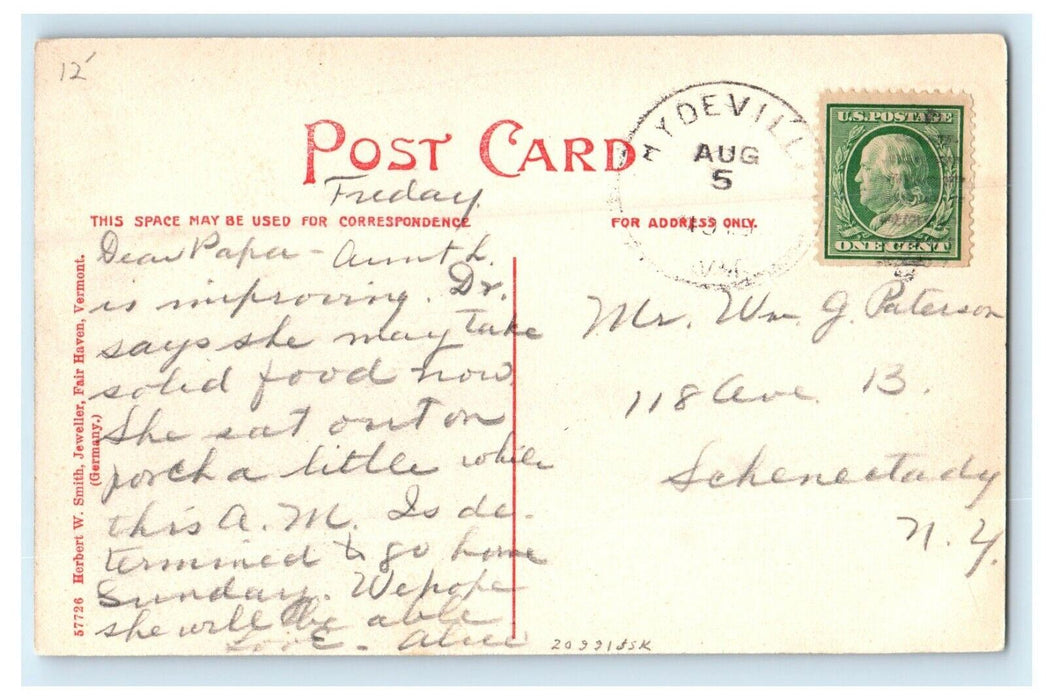 12
POST CARD
Freday.
THIS SPACE MAY BE USED FOR CORRESPONDENCE
FOR ADDRESS ONLY.
Dear Papa - Aunt L.
is improving. Dr.
says she may take
solid food now.
She sat out on
porch a little while
this A. M. Is de-
termined to go home
Sunday. We hope
she will be able
Love - Alice
57726 Herbert W. Smith, Jeweller, Fair Haven, Vermont.
(Germany.)
HYDEVILL
AUG
5
U.S. POSTAGE
ONE CENT
Mr. Wm. J. Paterson
118 Ave. B.
Schenectady
N. Y.